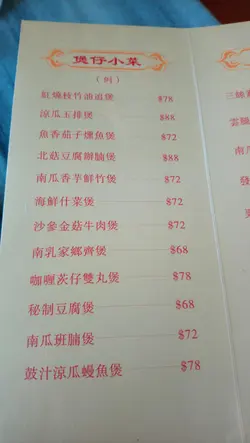 煲仔小菜
（例）
紅燒枝竹油追煲 $78
涼瓜玉排煲 $88
魚香茄子燻魚煲 $72
北菇豆腐斑腩煲 $88
南瓜香芋鮮竹煲 $72
海鮮什菜煲 $72
沙參金菇牛肉煲 $72
南乳家鄉齋煲 $68
咖喱茨仔雙丸煲 $78
秘制豆腐煲 $68
南瓜班腩煲 $72
鼓汁涼瓜鰻魚煲 $78
三絲
雲腿
南瓜
發
更